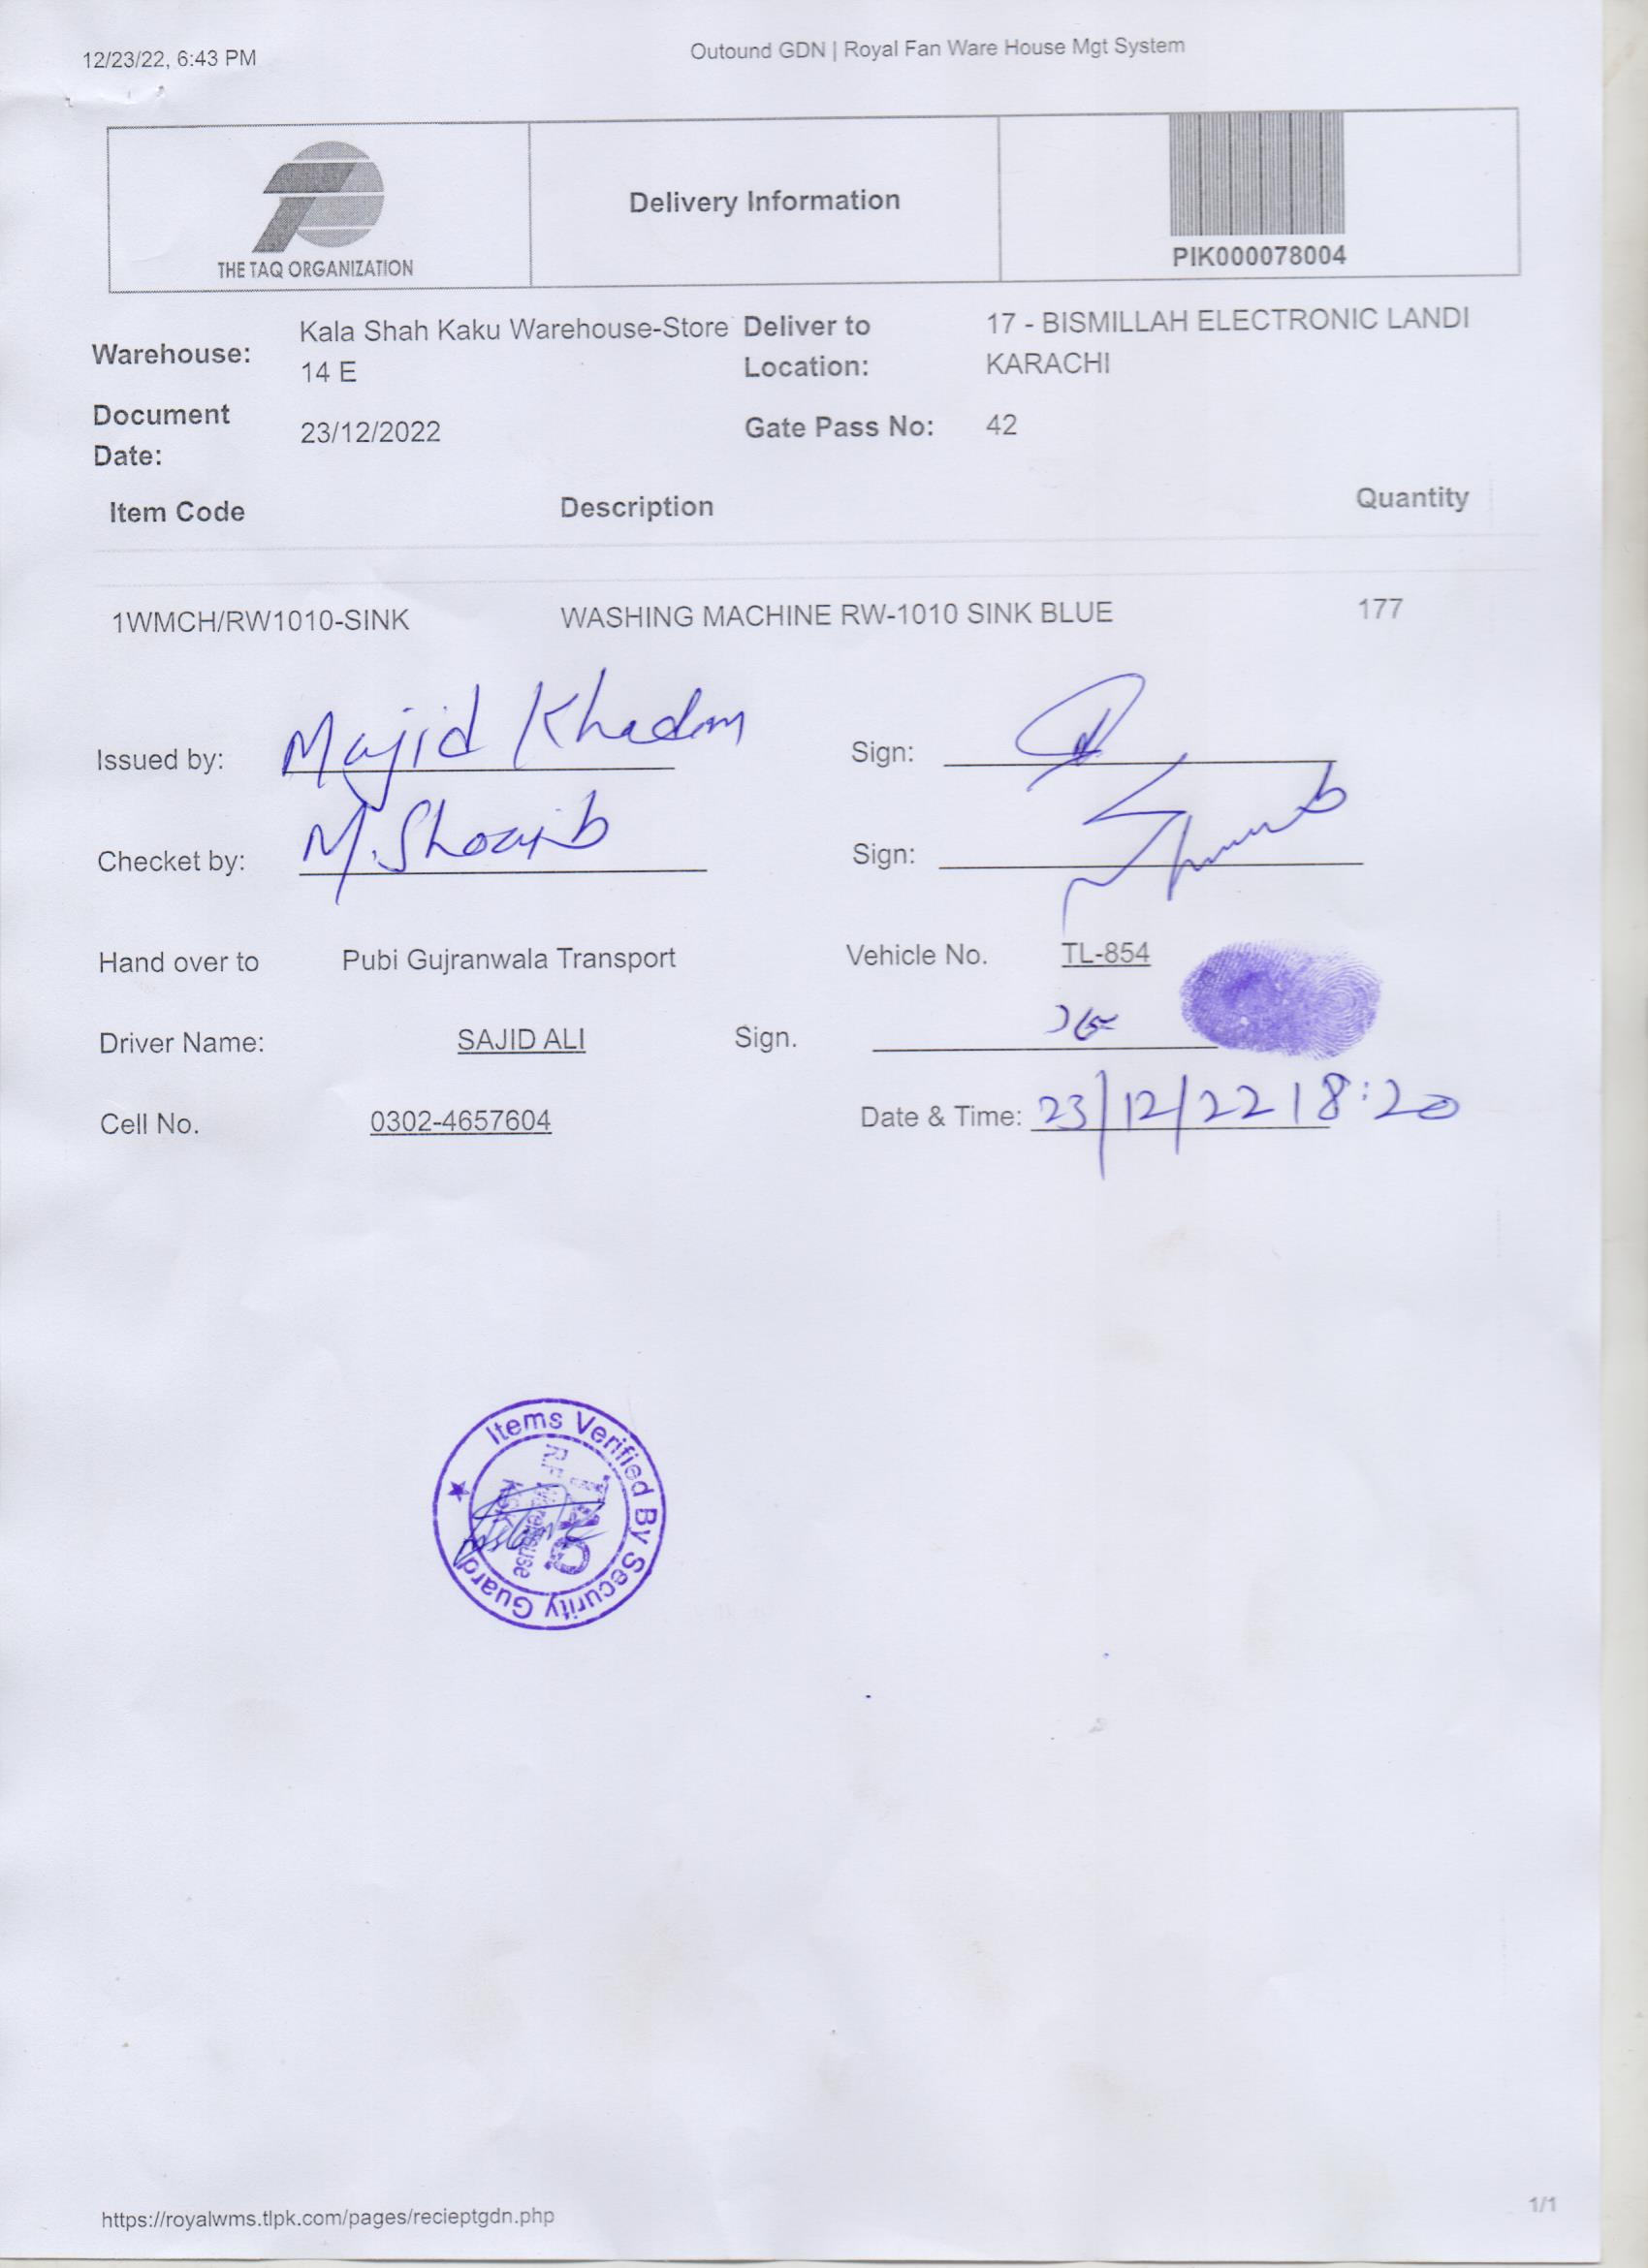 12/23/22, 6:43 PM
Outound GDN | Royal Fan Ware House Mgt System
THE TAQ ORGANIZATION
Delivery Information
PIK000078004
Warehouse: Kala Shah Kaku Warehouse-Store 14 E
Deliver to Location: 17 - BISMILLAH ELECTRONIC LANDI KARACHI
Document Date: 23/12/2022
Gate Pass No: 42
Item Code Description Quantity
1WMCH/RW1010-SINK WASHING MACHINE RW-1010 SINK BLUE 177
Issued by: Majid Khadam Sign:
Checket by: M. Shoaib Sign:
Hand over to Pubi Gujranwala Transport Vehicle No. TL-854
Driver Name: SAJID ALI Sign.
Cell No. 0302-4657604 Date & Time: 23/12/22 18:20
Items Verified By Security Guard
TAQ
R.F Warehouse
KSK
https://royalwms.tlpk.com/pages/recieptgdn.php
1/1